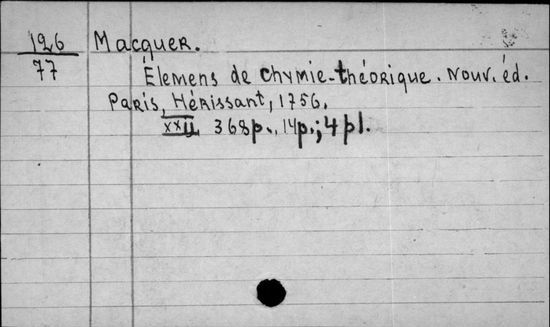 126 Macquer.
77 Élemens de chymie-théorique. Nouv. éd.
Paris, Hérissant, 1756.
XXII 368p., 14p.; 4 pl.